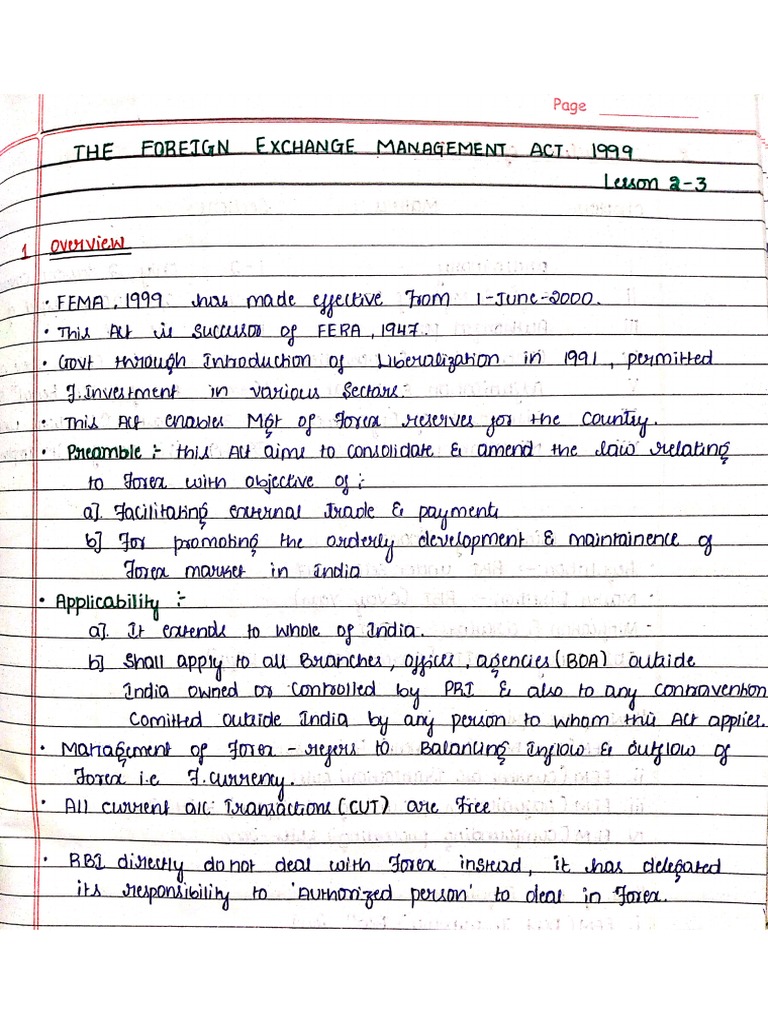 Page
THE FOREIGN EXCHANGE MANAGEMENT ACT, 1999
Lesson 2-3
1 Overview
• FEMA, 1999 has made effective from 1-June-2000.
• This Act is successor of FERA, 1947.
• Govt through Introduction of Liberalization in 1991, permitted
F. Investment in various Sectors.
• This Act enables Mgt of Forex reserves for the Country.
• Preamble :- this Act aims to consolidate & amend the law relating
to Forex with objective of :
a]. Facilitating external Trade & payment
b] For promoting the orderly development & maintainence of
Forex market in India
• Applicability :-
a]. It extends to whole of India.
b] Shall apply to all Branches, offices, agencies (BOA) outside
India owned or controlled by PRI & also to any contravention
Comitted outside India by any person to whom this Act applies.
• Management of Forex - refers to Balancing Inflow & outflow of
Forex i.e F. currency.
• All current a/c Transactions (CUT) are Free
• RBI directly do not deal with Forex instead, it has delegated
its responsibility to 'Authorized person' to deal in Forex.